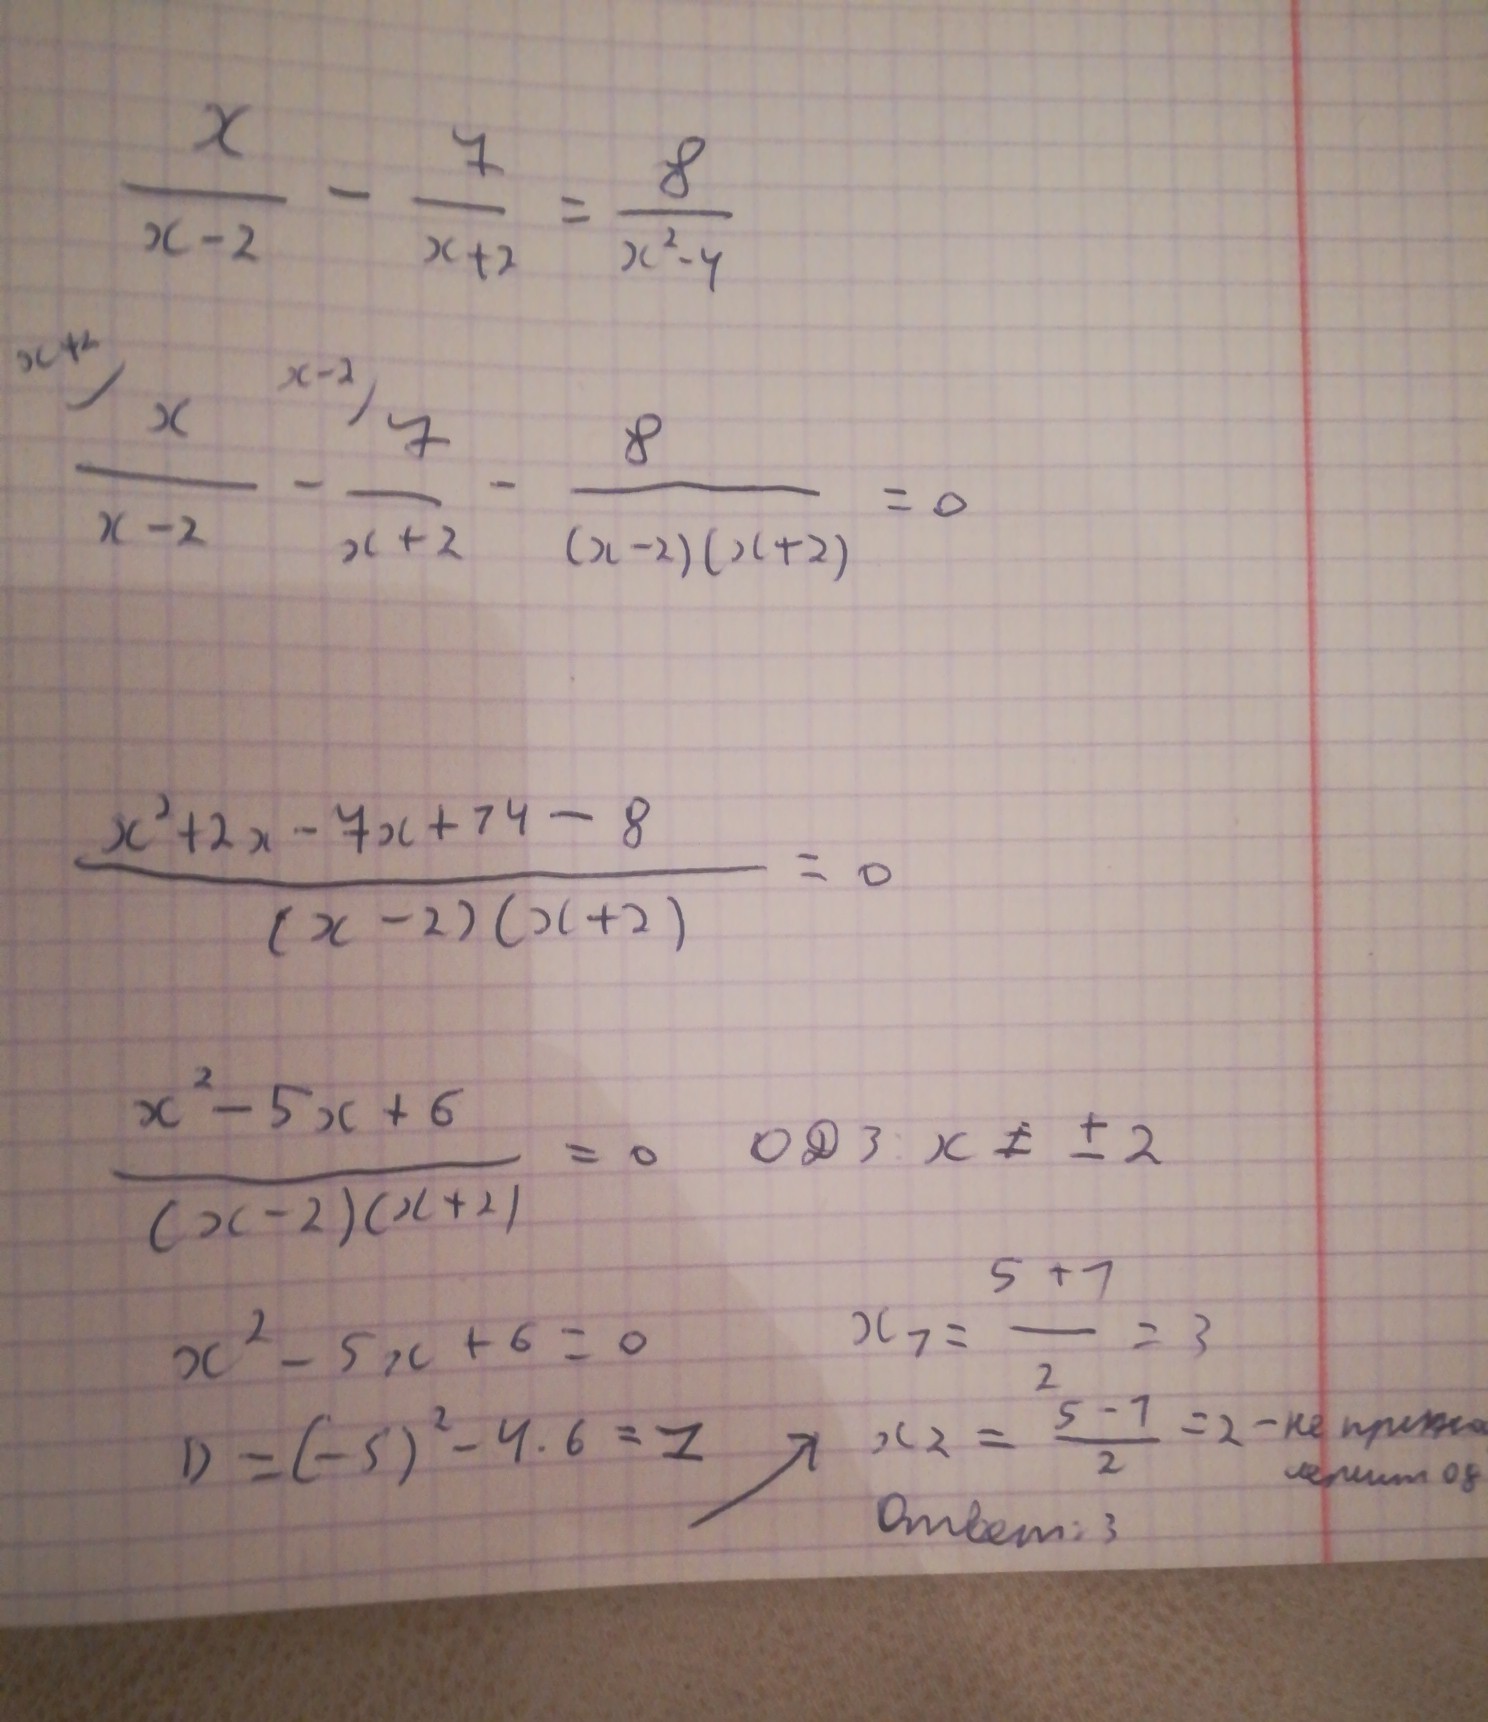 x/(x-2) - 7/(x+2) = 8/(x²-4)
x+2/ x/(x-2) - x-2/ 7/(x+2) - 8/((x-2)(x+2)) = 0
(x²+2x-7x+14-8)/((x-2)(x+2)) = 0
(x²-5x+6)/((x-2)(x+2)) = 0 ОДЗ: x ≠ ±2
x²-5x+6=0
D=(-5)²-4·6=1
x1=(5+1)/2=3
x2=(5-1)/2=2-не
Ответ: 3